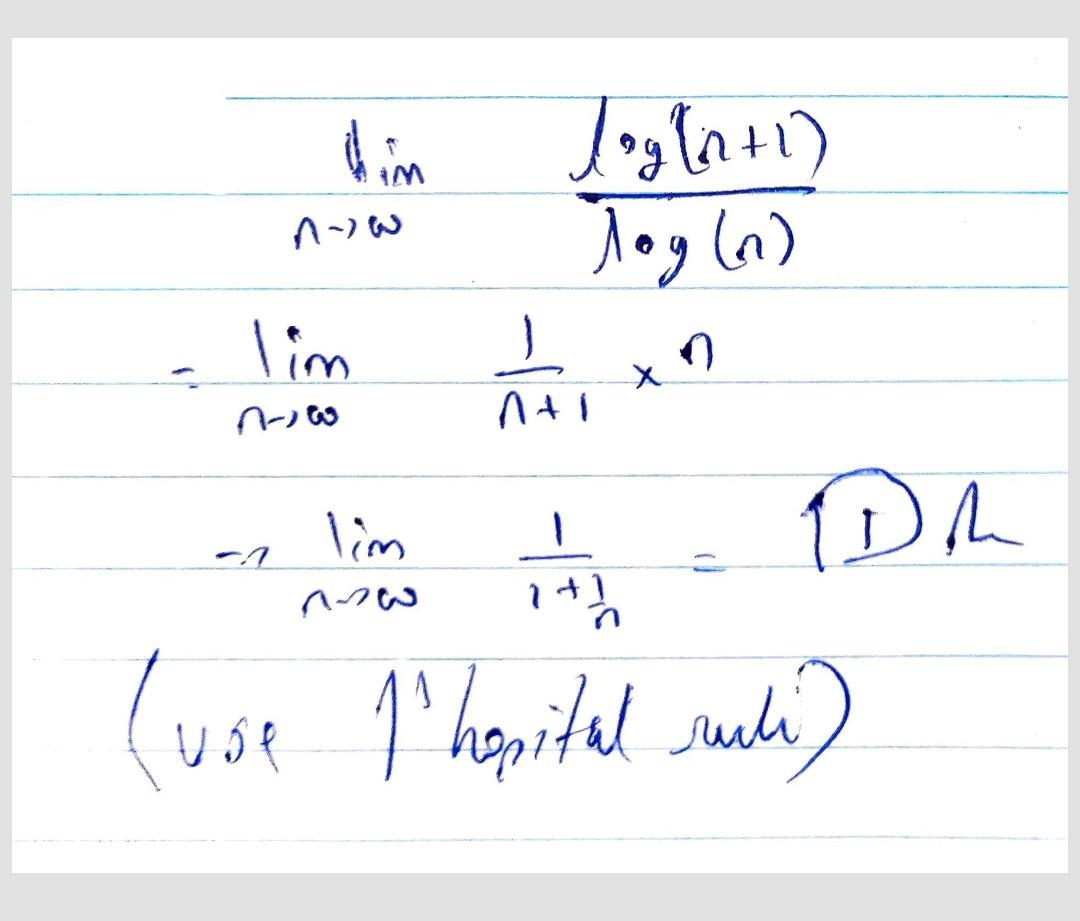 lim n→∞ log(n+1) / log(n)
= lim n→∞ 1/(n+1) × n
→ lim n→∞ 1/(1+1/n) = 1
(use l'hopital rule)